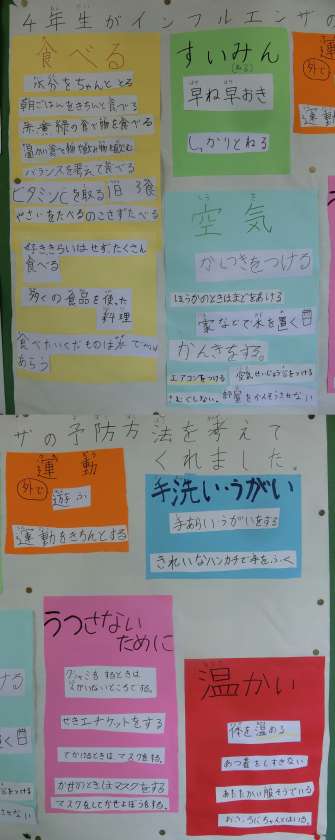 4年生がインフルエンザの
食べる
水分をちゃんととる
朝ごはんをきちんと食べる
赤黄緑の食べ物を食べる
温かい食べ物や飲み物を飲む
バランスを考えて食べる
ビタミンCを取る 1日3食
やさいをたべる のこさずたべる
好ききらいはせず、たくさん
食べる
多くの食品を使った
料理
あらう
すいみん
早ね早おき
しっかりとねる
運
外で
運動
空気
かしつきをつける
ほうかのときはまどをあける
家などで水を置く
かんきをする。
エアコンをつける
空気せいじょうきをつける
さむくしない。
部屋をかんそうさせない
ザの予防方法を考えて
くれました。
運動
外で
遊ぶ
運動をきちんとする
手洗い・うがい
手あらい・うがいをする
きれいなハンカチで手をふく
うつさない
ために
クシャミをするときは
人がいないところでする。
せきエチケットをする
でかけるときは、マスクをする。
かぜのときはマスクをする
マスクをしてかぜよぼうをする。
温かい
体を温める
あつ着をしすぎない
あたたかい服そうでいる